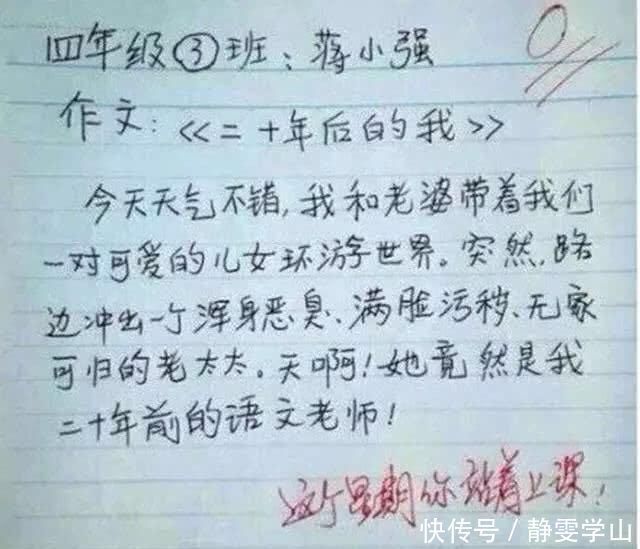 四年级③班：蒋小强
0
作文：<<二十年后的我>>
今天天气不错，我和老婆带着我们
一对可爱的儿女环游世界。突然，路
边冲出一个浑身恶臭、满脸污秽、无家
可归的老太太。天啊！她竟然是我
二十年前的语文老师！
这个星期你站着上课！
快传号 / 静雯学山